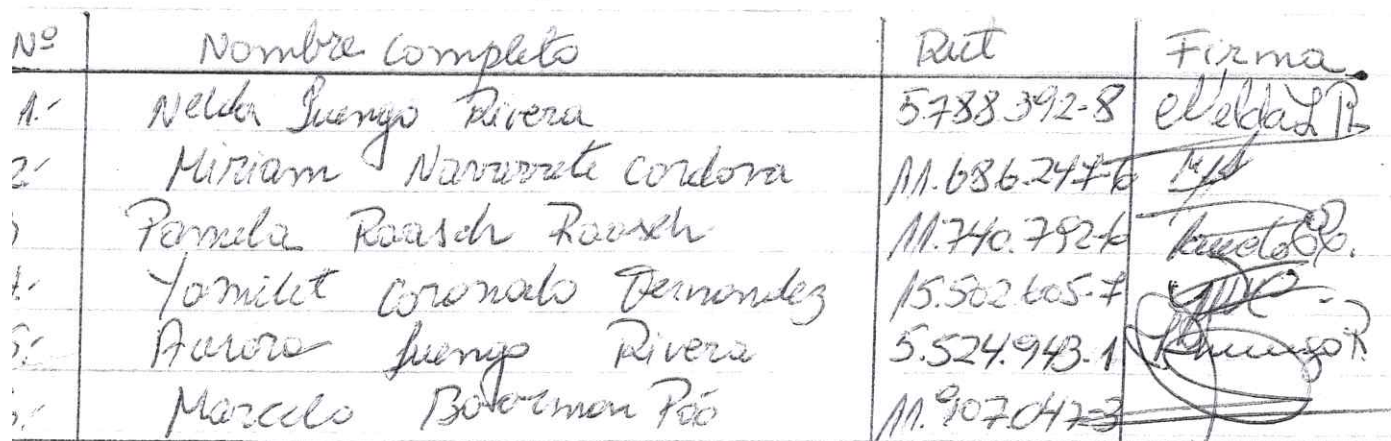 Nº Nombre completo Rut Firma
1.- Nelda Luengo Rivera 5.788.392-8 Nelda L R.
2.- Miriam Navarrete Cordova 11.686.247-6
Pamela Raasch Raasch 11.740.792-6
Yamilet Coronado Fernandez 15.502.605-7
5.- Aurora Luengo Rivera 5.524.943.1 Luengo R.
Marcelo 11.907.047-3